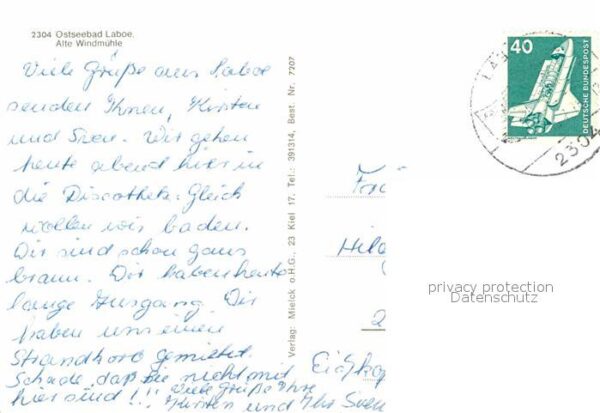 2304 Ostseebad Laboe.
Alte Windmühle
Viele Grüße aus Laboe
senden Ihnen, Kirsten
und Sven. Wir gehen
heute abend hier in
die Discothek. Gleich
wollen wir baden.
Wir sind schon ganz
braun. Wir haben heute
lange Ausgang. Wir
haben uns einen
Strandkorb gemietet.
Schade, daß Sie nicht mit
hier sind!!! Viele Grüße Ihre
Kirsten und Ihr Sven
Verlag: Mielck o.H.G., 23 Kiel 17, Tel.: 391314, Best. Nr. 7707
40
DEUTSCHE BUNDESPOST
2304
privacy protection
Datenschutz